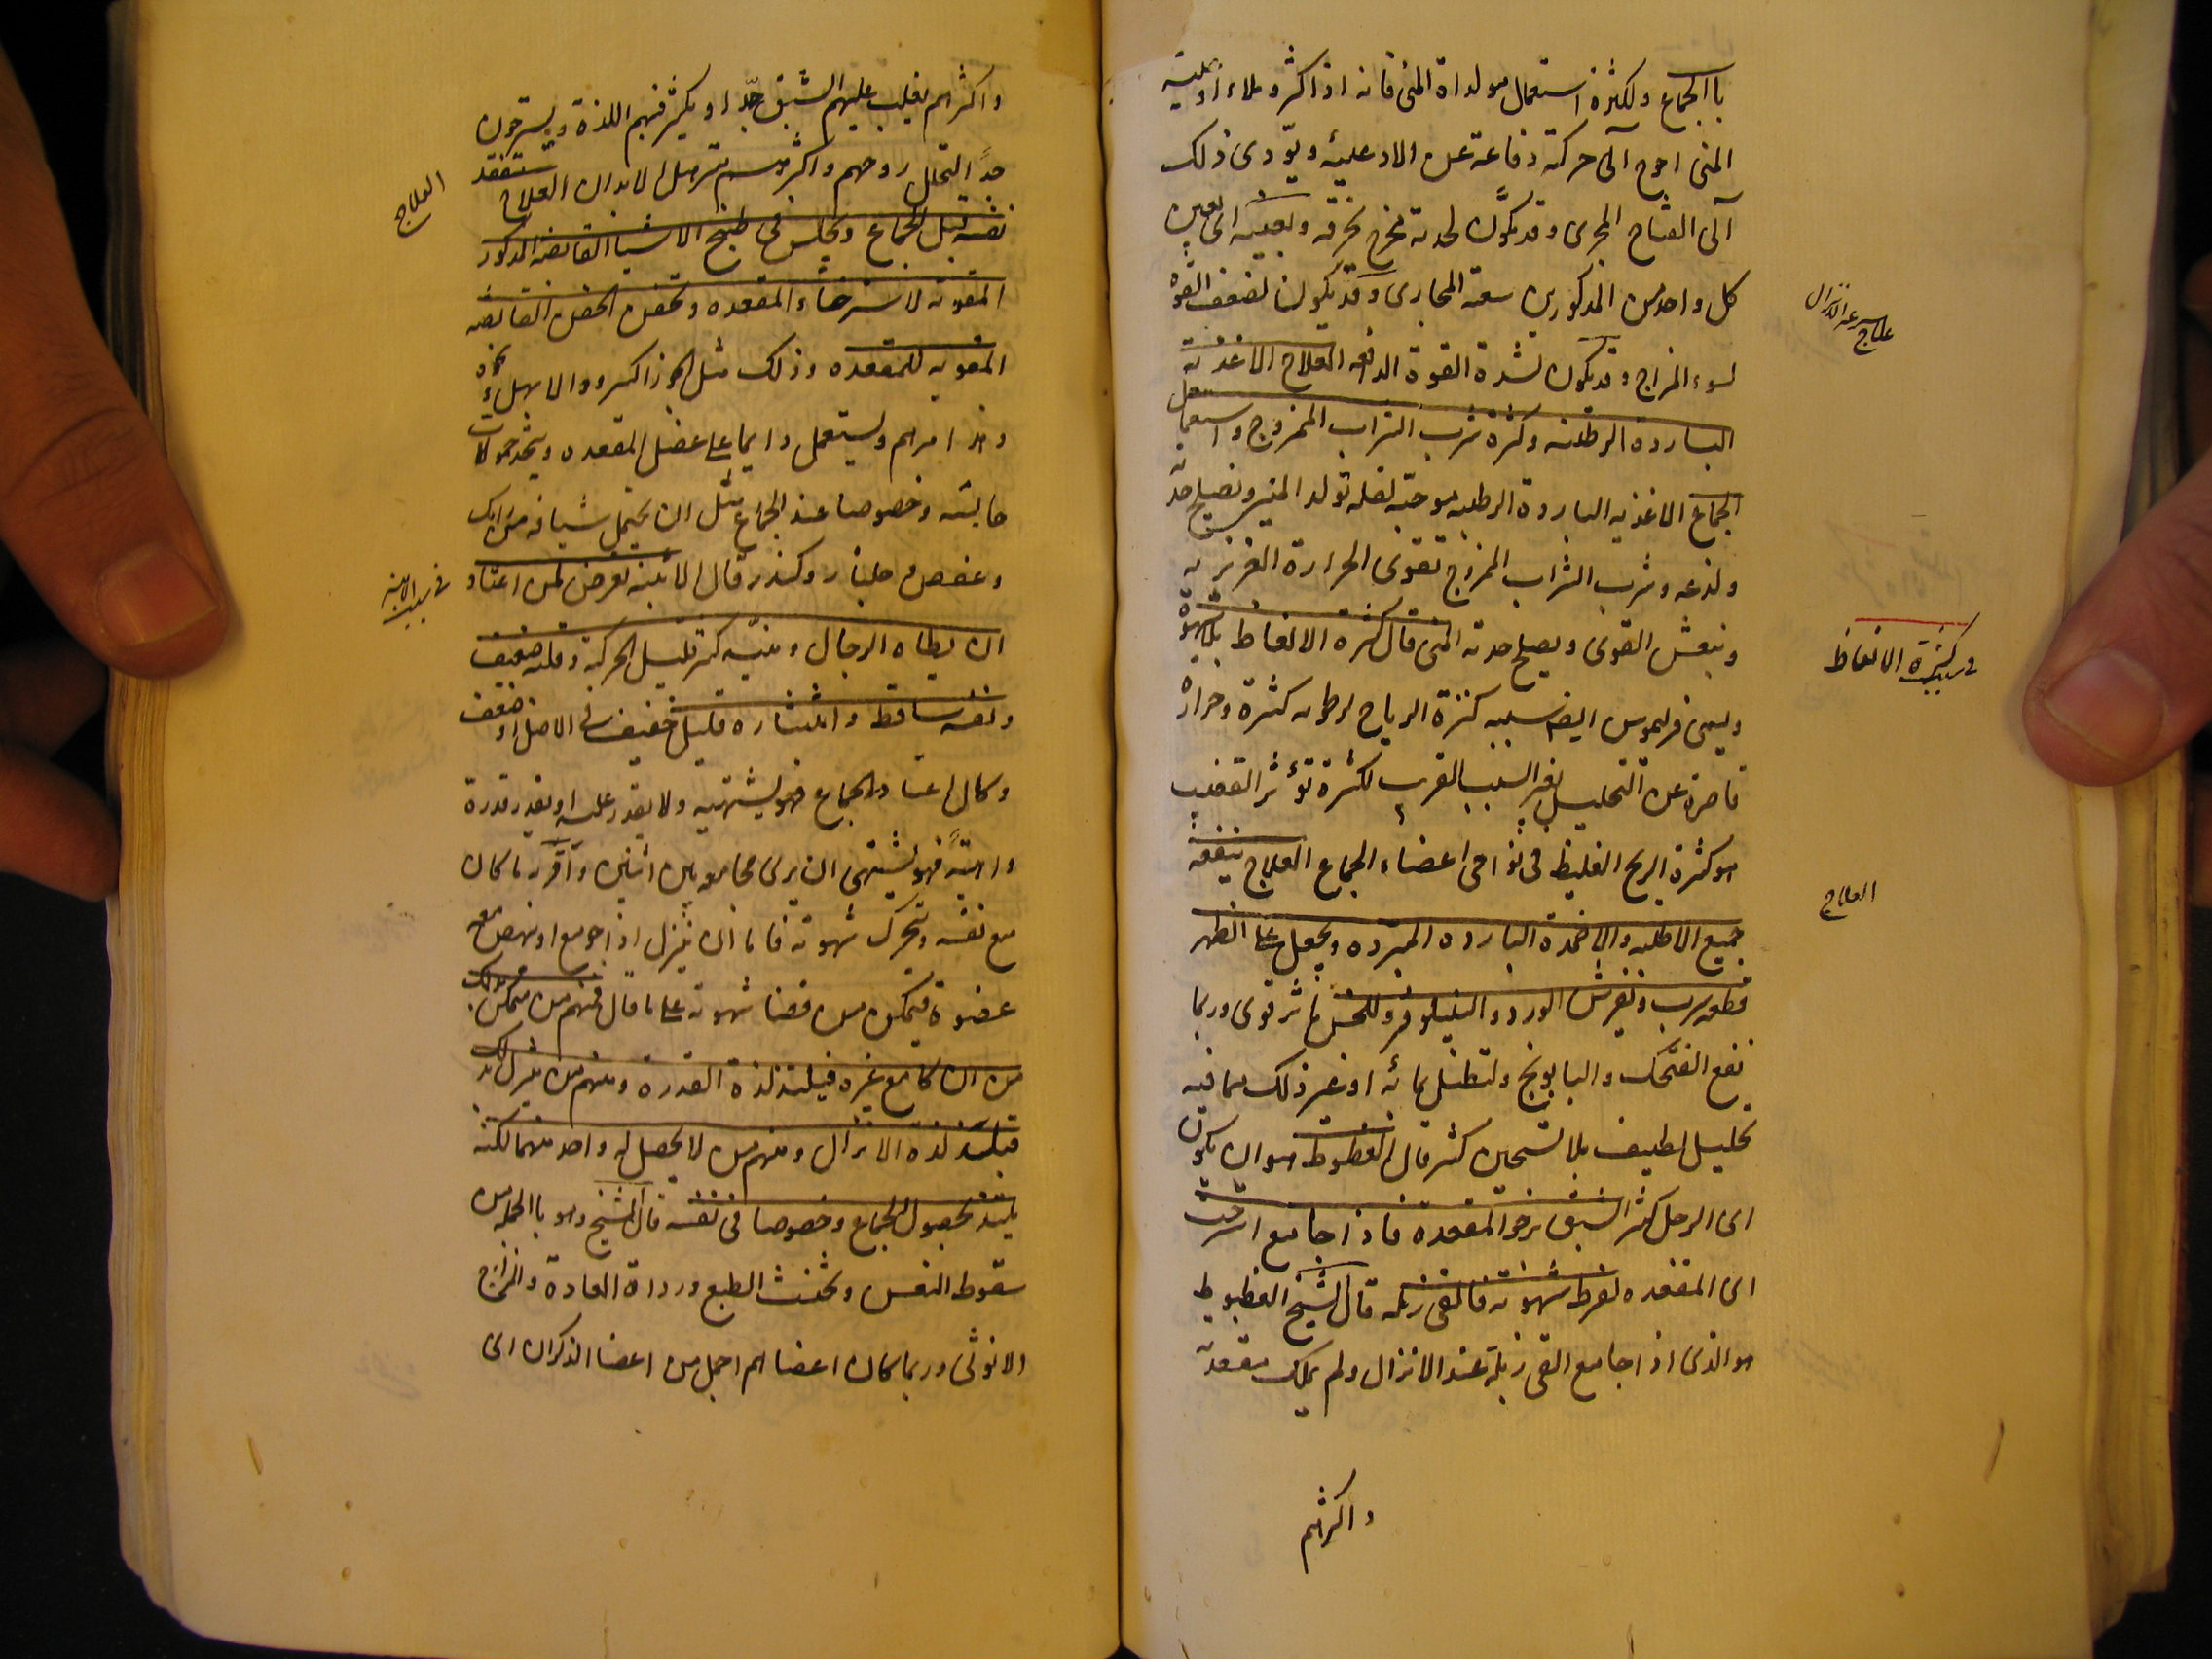 با الجماع ولكثرة استعمال مولداة المنى فانه اذا كثر وملاء اوعيته
المنى احوج آلى حركة دفاعة عن الاوعية ويؤدى ذلك
آلى انفتاح المجرى وقد يكون لحدته فيخرج بحرقة ويعينه اى يعين
كل واحد من المذكورين سعة المجارى وقد يكون لضعف القوة
لسوء المزاج وقد يكون لشدة القوة الدافعه العلاج الاغذية
الباردة الرطبة وكثرة شرب الشراب الممزوج واستعمال
الجماع الاغذيه الباردة الرطبه موجبة لقلة تولد المنى وتصلح حدته
ولذعه وشرب الشراب الممزوج تقوى الحرارة الغريزية
وينعش القوى ويصلح حدته المنى قال كثرة الانعاظ بلا شهوة
ويسمى فريموس ايضا سببه كثرة الرياح لرطوبه كثرة وحرارة
قاصرة عن التحليل بغير السبب القريب لكثرة توتر القضيب
هو كثرة الريح الغليظ فى نواحى اعضاء الجماع العلاج ينفعه
جميع الاطليه والاضمدة الباردة المبرده ويجعل على الظهر
قطعه سرب ويفرش الورد والنيلوفر وللخس تاثر قوى وربما
نفع الفنجنك والبابونج والتنطيل بمائه او غير ذلك مما فيه
تحليل لطيف بلا تسخين كثر قال العظيوط هو ان يكون
اى الرجل كثر الشبق رخو المقعدة فاذا جامع استرخت
اى المقعده لفرط شهوته فالقى زبله قال الشيخ العظيوط
هو الذى اذا جامع القى زبله عند الانزال ولم يملك مقعدته
واكثرهم
علاج سرعه الانزال
فى سبب كثرة الانعاظ
العلاج
واكثرهم يغلب عليهم الشبق جدا ويكثر فيهم اللذة ويسترخون
جدً التحلل روحهم واكثرهم مترهل الابدان العلاج يستفقد
نفسه قبل الجماع ويجلس فى طبيخ الاشيا القابضه المذكور
المقويه لاسترخاء المقعده وتحقن الحقن القابضه
المقويه للمقعده وذلك مثل الجوز السرو والابهل ونحوه
وهذا مراهم ويستعمل دايما على عضل المقعده ويتخذ حمولات
حابسه وخصوصا عند الجماع مثل ان يحتمل شيافه من رامك
وعفص وجلنار وكندر قال الابنه تعرض لمن اعتاد
ان يطاه الرجال ومنيه كثر قليل الحركة وقلبه ضعيف
ونفسه ساقط وانتشاره قليل ضعيف فى الاصل او ضعف
وكان اعتاد الجماع فهو يشتهيه ولا يقدر عليه او يقدر قدرة
واهيةً فهو يشتهى ان يرى مجامعه بين اثنين واقربه ما كان
مع نفسه وتتحرك شهوته فاما ان ينزل اذا جومع او ينهض معه
عضوه فيتمكن من قضا شهوته على ما قال فمنهم من يتمكن بذلك
من ان يجامع غيره فيلتذ لذة القدرة ومنهم من ينزل بذلك
فيلتذ لذة الانزال ومنهم من لا يحصل له واحد منهما لكنه
يلتذ بحصول الجماع وخصوصا فى نفسه قال الشيخ وهو بالجمله من
سقوط النفس وتخنث الطبع ورداة العادة والمزاج
الانوثى وربما كان اعضاهم اجمل من اعضا الذكران اى
العلاج
فى سبب الابنه